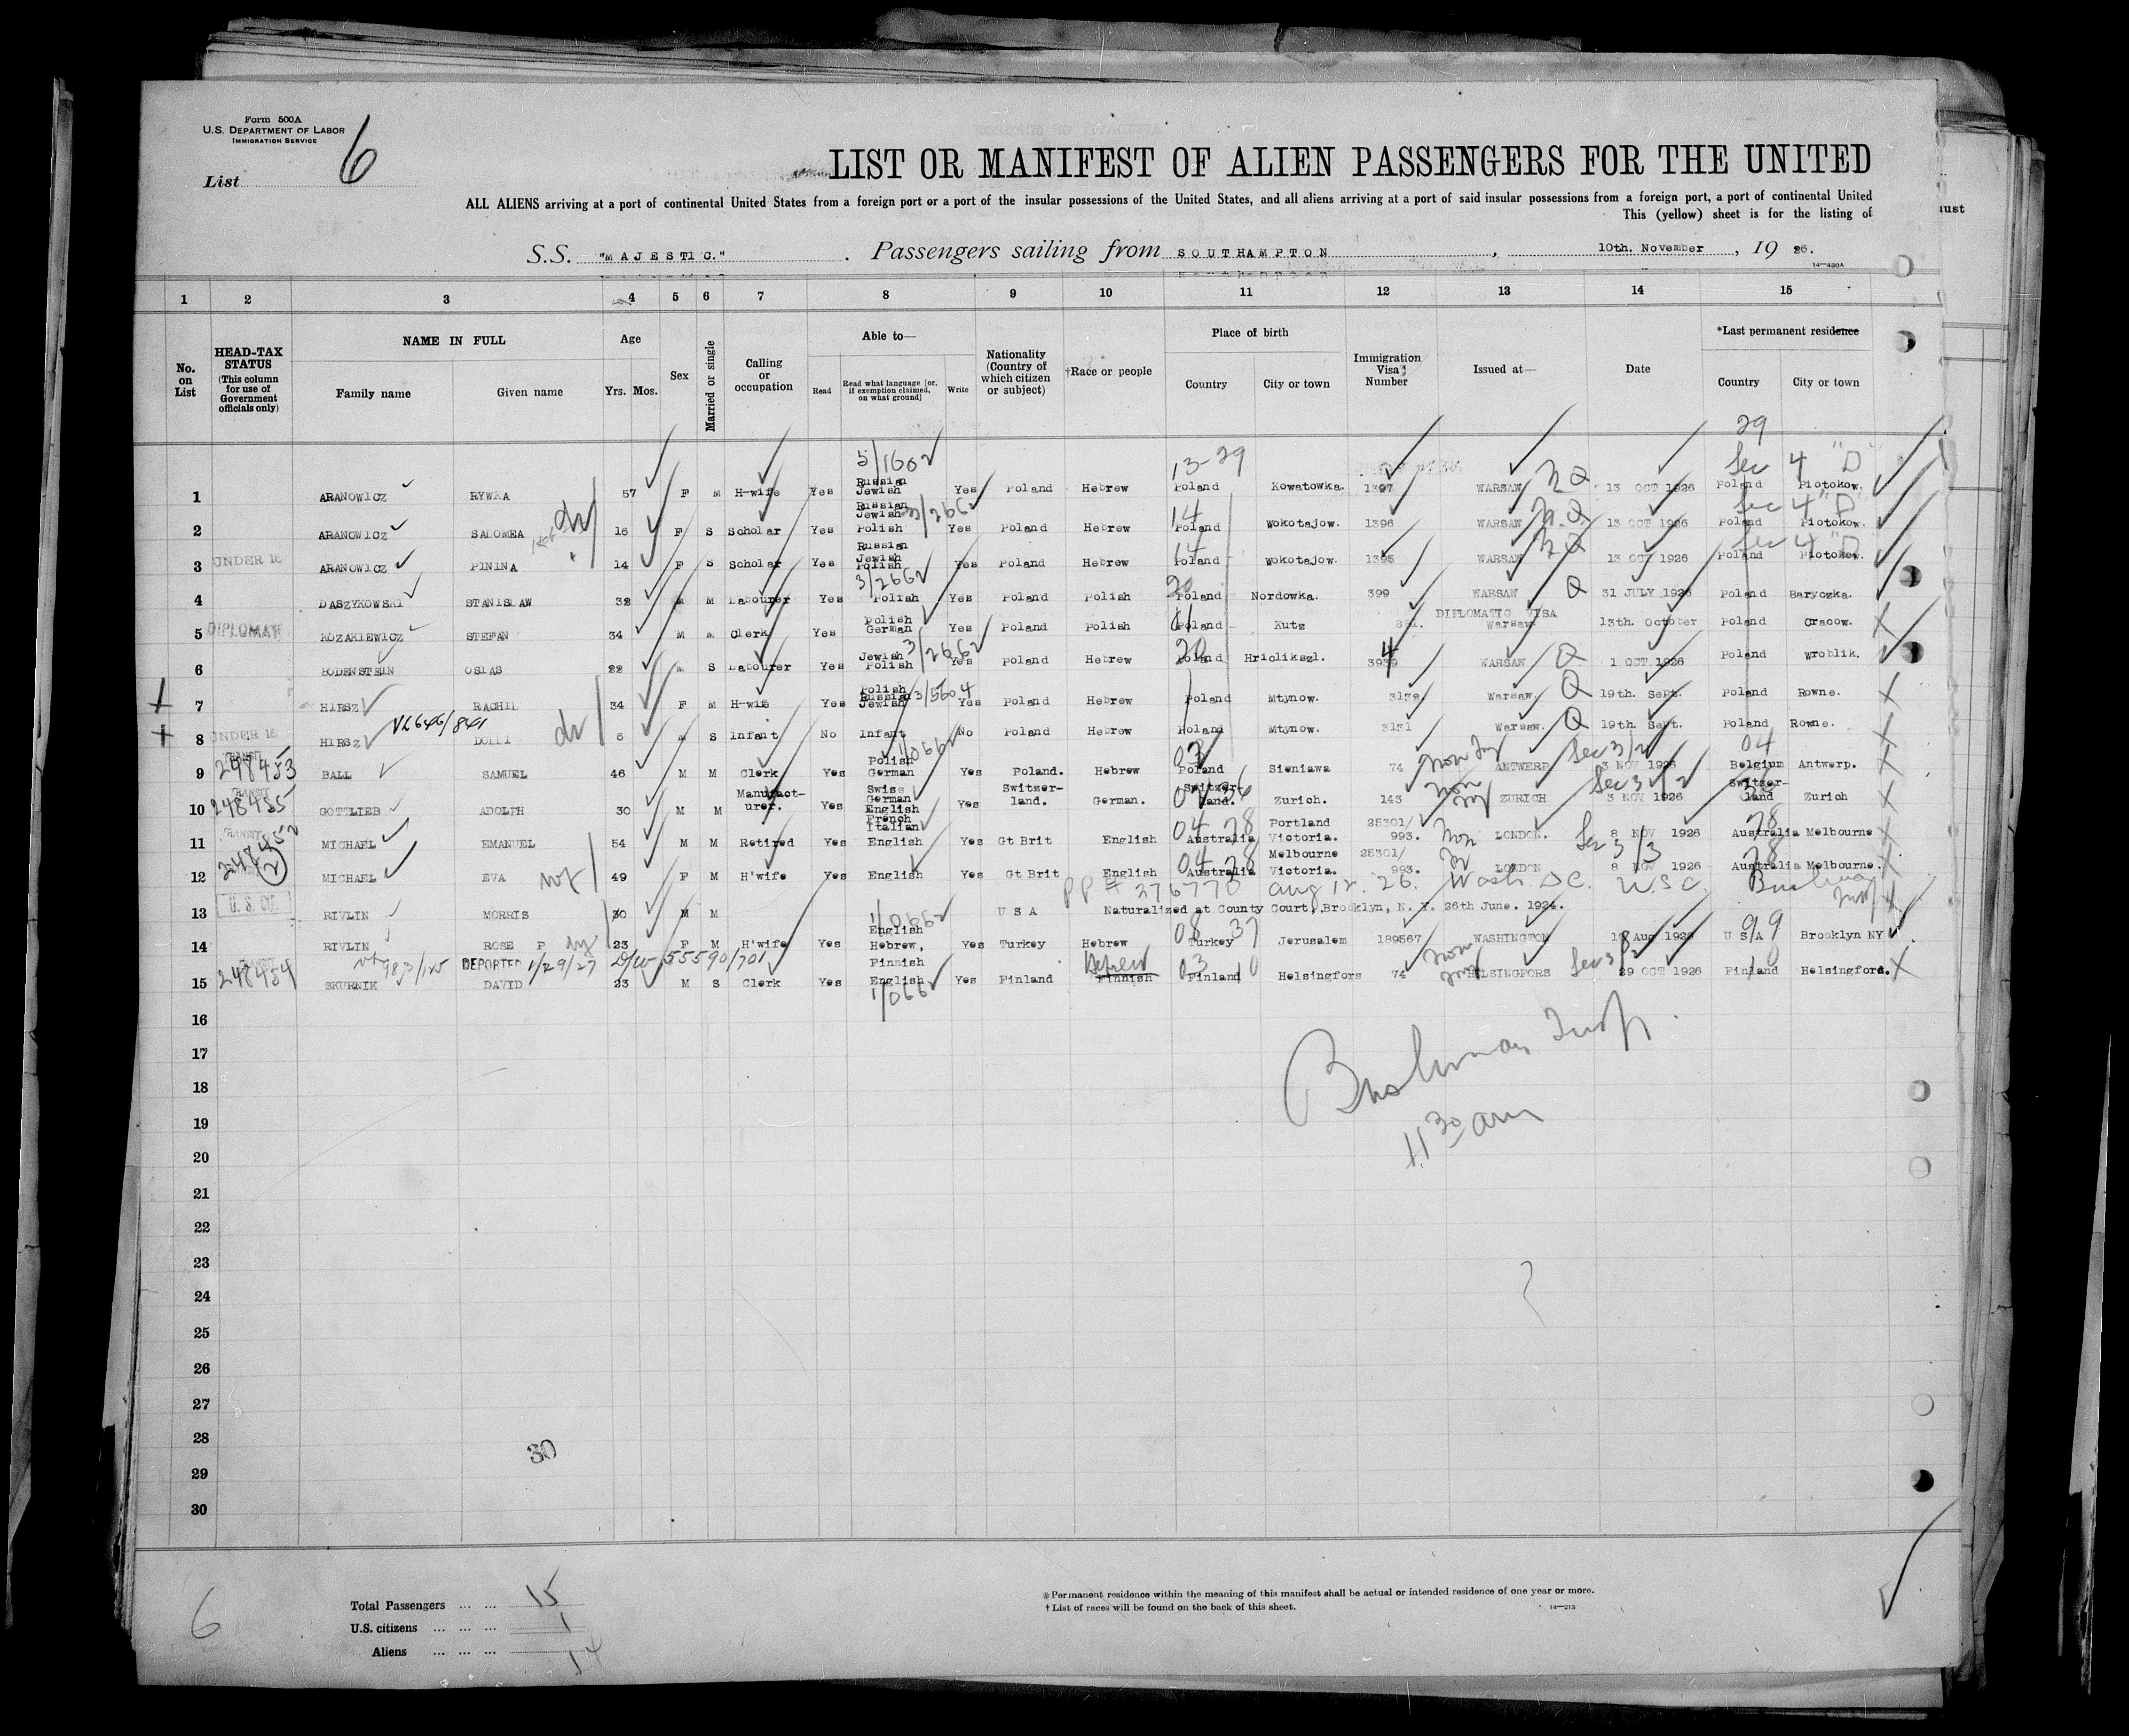 Form 500A
U.S. DEPARTMENT OF LABOR
IMMIGRATION SERVICE
List 6
LIST OR MANIFEST OF ALIEN PASSENGERS FOR THE UNITED
ALL ALIENS arriving at a port of continental United States from a foreign port or a port of the insular possessions of the United States, and all aliens arriving at a port of said insular possessions from a foreign port, a port of continental United
This (yellow) sheet is for the listing of
S.S. "MAJESTIC." Passengers sailing from SOUTHAMPTON, 10th. November, 19 26.
14—430A
1 2 3 4 5 6 7 8 9 10 11 12 13 14 15
No. on List
HEAD-TAX STATUS (This column for use of Government officials only)
NAME IN FULL
Family name Given name
Age
Yrs. Mos.
Sex
Married or single
Calling or occupation
Able to—
Read Read what language [or, if exemption claimed, on what ground] Write
Nationality (Country of which citizen or subject)
†Race or people
Place of birth
Country City or town
Immigration Visa Number
Issued at—
Date
*Last permanent residence
Country City or town
29
5/160 13-29 Sec 4 "D"
1 ARANOWICZ RYWKA 57 F M H-wife Yes Russian Jewish Yes Poland Hebrew Poland Kowatowka. 1397 WARSAW NQ 13 OCT 1926 Poland Piotokow.
3/266 14 Sec 4 "D"
2 ARANOWICZ SALOMEA 16 F S Scholar Yes Russian Jewish Polish Yes Poland Hebrew Poland Wokotajow. 1396 WARSAW N.Q 13 OCT 1926 Poland Piotokow.
14 Sec 4 "D"
3 UNDER 16 ARANOWICZ PININA 14 F S Scholar Yes Russian Jewish Polish Yes Poland Hebrew Poland Wokotajow. 1395 WARSAW NQ 13 OCT 1926 Poland Piotokow.
3/266 20
4 DASZYKOWSKI STANISLAW 38 M M Labourer Yes Polish Yes Poland Polish Poland Nordowka. 399 WARSAW Q 31 JULY 1926 Poland Baryczka.
5 DIPLOMAT KOZAKIEWICZ STEFAN 34 M M Clerk Yes Polish German Yes Poland Polish Poland Kutz DIPLOMATIC VISA Warsaw. 13th. October Poland Cracow. X
3/266 20
6 BODENSTEIN OSIAS 22 M S Labourer Yes Jewish Polish Yes Poland Hebrew Poland Hriclikszl. WARSAW Q 1 OCT 1926 Poland Wroblik.
3/560
7 HIRSZ RACHIL 34 F M H-wife Yes Polish Russian Jewish Yes Poland Hebrew Poland Mtynow. Warsaw. Q 19th. Sept. Poland Rowne. X
8 UNDER 16 HIRSZ 6 M S Infant No Infant No Poland Hebrew Poland Mtynow. 3131 Warsaw. Q 19th. Sept. Poland Rowne. X
TRANSIT 1/066 04
9 248453 BALL SAMUEL 46 M M Clerk Yes Polish German Yes Poland. Hebrew Poland Sieniawa 74 ANTWERP Sec 3/2 3 NOV 1926 Belgium Antwerp. X
TRANSIT
10 248455 GOTTLIEB ADOLPH 30 M M Manufact-urer. Yes Swiss German English French Italian Yes Switzer-land. German. Switzer-land. Zurich. 143 ZURICH Sec 3/2 3 NOV 1926 Switzer-land Zurich X
TRANSIT 04 78 78
11 MICHAEL EMANUEL 54 M M Retired Yes English Yes Gt Brit English Australia Portland Victoria. 25301/993. LONDON. Sec 3/3 8 NOV 1926 Australia Melbourne X
04 78 78
12 MICHAEL EVA 49 F M H'wife Yes English Yes Gt Brit English Australia Melbourne Victoria. 25301/993. LONDON 8 NOV 1926 Australia Melbourne. X
PP# 276770 Aug 12. 26. Wash DC. USC. Bushman Insp
13 U.S. CIT. RIVLIN MORRIS 30 M M U S A Naturalized at County Court, Brooklyn, N. Y. 26th June. 1924.
1/066 08 37 99
14 RIVLIN ROSE F 23 F M H'wife Yes English Hebrew, Yes Turkey Hebrew Turkey Jerusalem 189567 WASHINGTON Aug 1926 U S A Brooklyn NY
TRANSIT DEPORTED 1/29/27 55590/701 Hebrew
15 248454 SKURNIK DAVID 23 M S Clerk Yes Finnish English Yes Finland Finnish Finland Helsingfors 74 HELSINGFORS Sec 3/2 29 OCT 1926 Finland Helsingfors. X
1/066
16
17 Bushman Insp.
18
19 11 30 am
20
21
22
23
24
25
26
27
28
29 30
30
6
Total Passengers ... ... 15
U.S. citizens ... ... ... 1
Aliens ... ... ... 14
*Permanent residence within the meaning of this manifest shall be actual or intended residence of one year or more.
†List of races will be found on the back of this sheet.
14—213